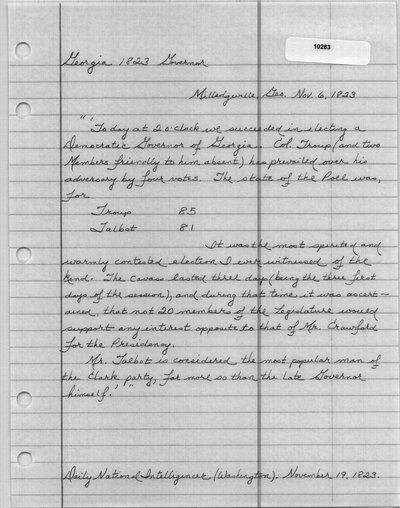 10283
Georgia 1823 Governor
Milledgeville, Geo. Nov. 6, 1823
"'
To day at 2 o'clock we succeeded in electing a
Democratic Governor of Georgia. Col. Troup (and two
Members friendly to him absent) has prevailed over his
adversary by four votes. The state of the Poll was,
For
Troup 85
Talbot 81
It was the most spirited and
warmly contested election I ever witnessed of the
kind. The Cavass lasted three days (being the three first
days of the session), and during that time it was ascert-
ained, that not 20 members of the Legislature would
support any interest opposite to that of Mr. Crawford
for the Presidency.
Mr. Talbot is considered the most popular man of
the Clark party, far more so than the late Governor
himself.'"
Daily National Intelligencer (Washington). November 19, 1823.